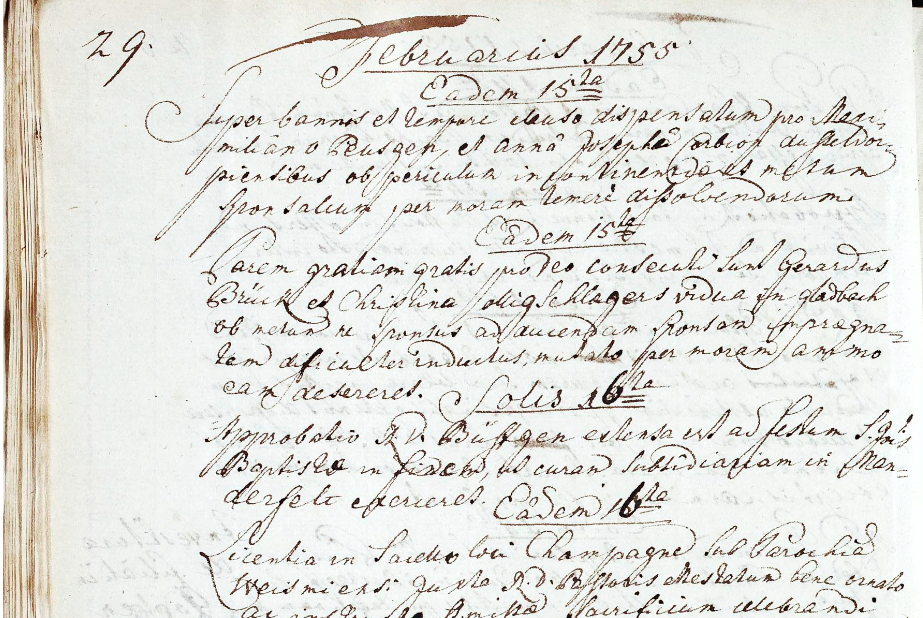 29.
Februarius 1755
Eadem 15ta
Super bannis et tempore clauso dispensatum pro Maxi-
miliano Peusgen, et Anna Josepha dusseldor-
piensibus ob periculum incontinentiae et metum
sponsalium per moram temere dissolvendorum
Eadem 15ta
Parem gratiam gratis pro Deo consecuti sunt Gerardus
Brück et Christina vidua in gladbach
ob metum ne sponsus ad ducendam sponsam impraegna-
tam difficulter inductus, mutato per moram animo
eam desereret.
Solis 16ta
Approbatio R. D. Büssgen extensa est ad festum S.
Baptistae in finem, ut curam subsidiariam in Man-
derfelt exerceret.
Eadem 16ta
Licentia in Sacello loci Champagne sub Parochia
Weismiensi juxta R. D. Pastoris attestatum bene ornato
Sacrificium celebrandi